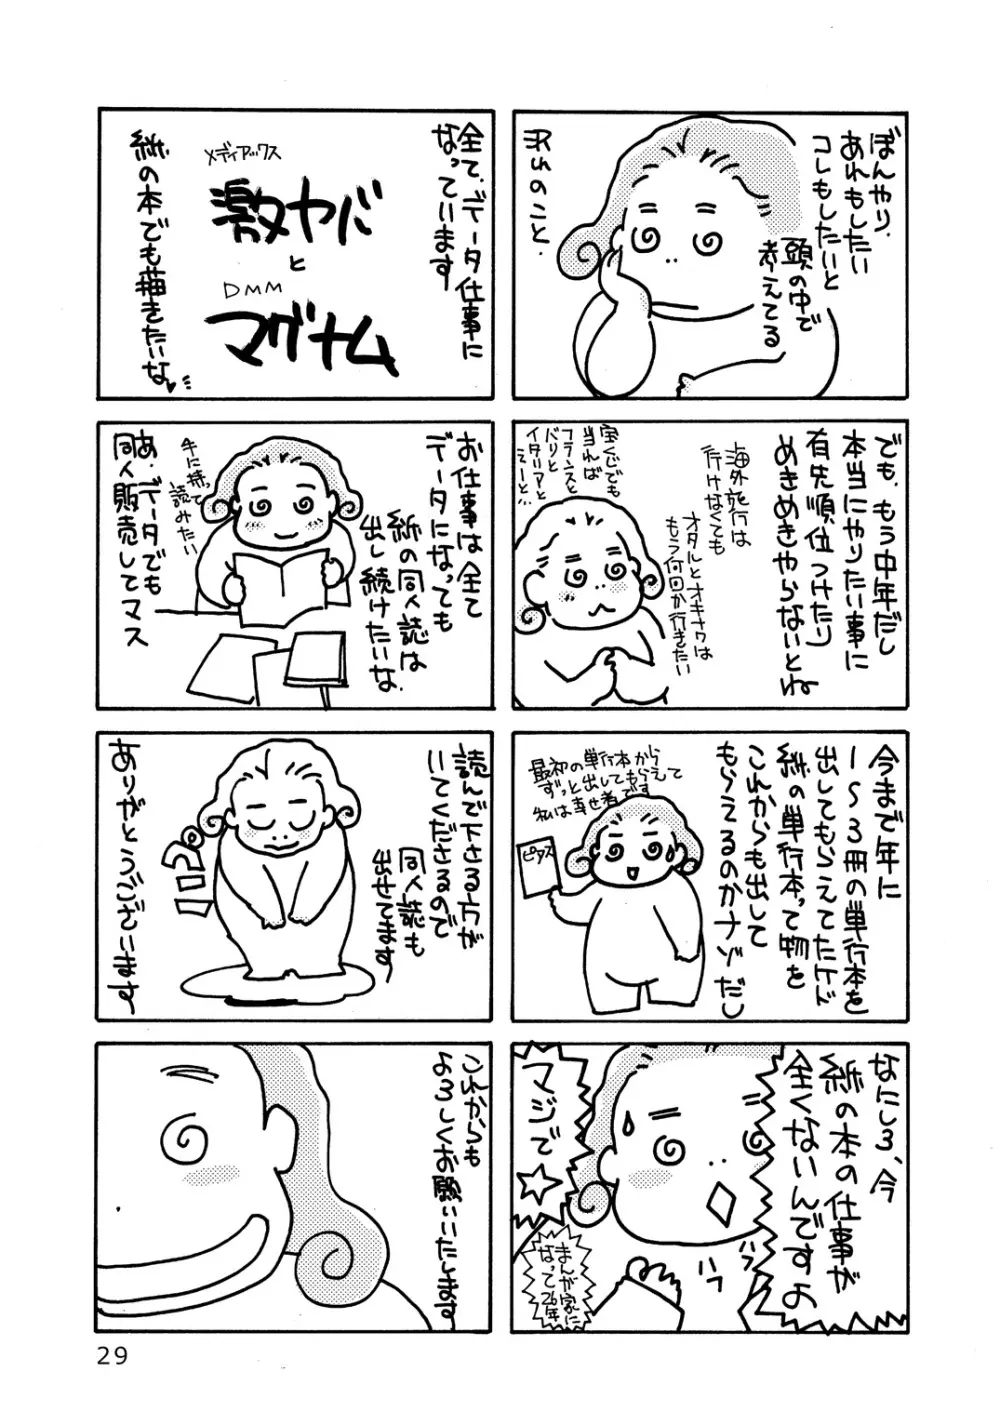 ぼんやり、
あれもしたい
コレもしたいと
頭の中で
考えてる
でも、もう中年だし
本当にやりたい事に
有先順位つけたり
めきめきやらないとね
海外旅行は
行けなくても
オタルとオキナワは
もう何回か行きたい
宝くじでも
当れば
フランスと
パリと
イタリアと
えーと…
今まで年に
1〜3冊の単行本を
出してもらえてたケド
紙の単行本って物を
これからも出して
もらえるのかナゾだし
最初の単行本から
ずっと出してもらえて
私は幸せ者です
ピアス
なにしろ、今
紙の本の仕事が
全くないんですよ
マジで☆
ハフ
ハフ
まんが家に
なって26年
全て、データ仕事に
なっています
メディアックス
激ヤバ
と
DMM
マグナム
紙の本でも描きたいな♥
お仕事は全て
データになっても
紙の同人誌は
出し続けたいな
手に持って
読みたい
あ、データでも
同人販売してマス
読んで下さる方が
いてくださるので
同人誌も
出せてます
ありがとうございます
ペコリ
これからも
よろしくお願いいたします
29